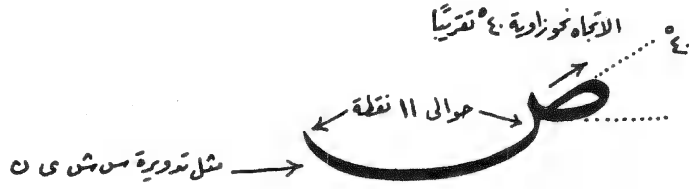 الاتجاه نحو زاوية ٤٠° تقريبًا
٤٠°
ص
حوالى ١١ نقطة
مثل تدويرة س ش ى ن